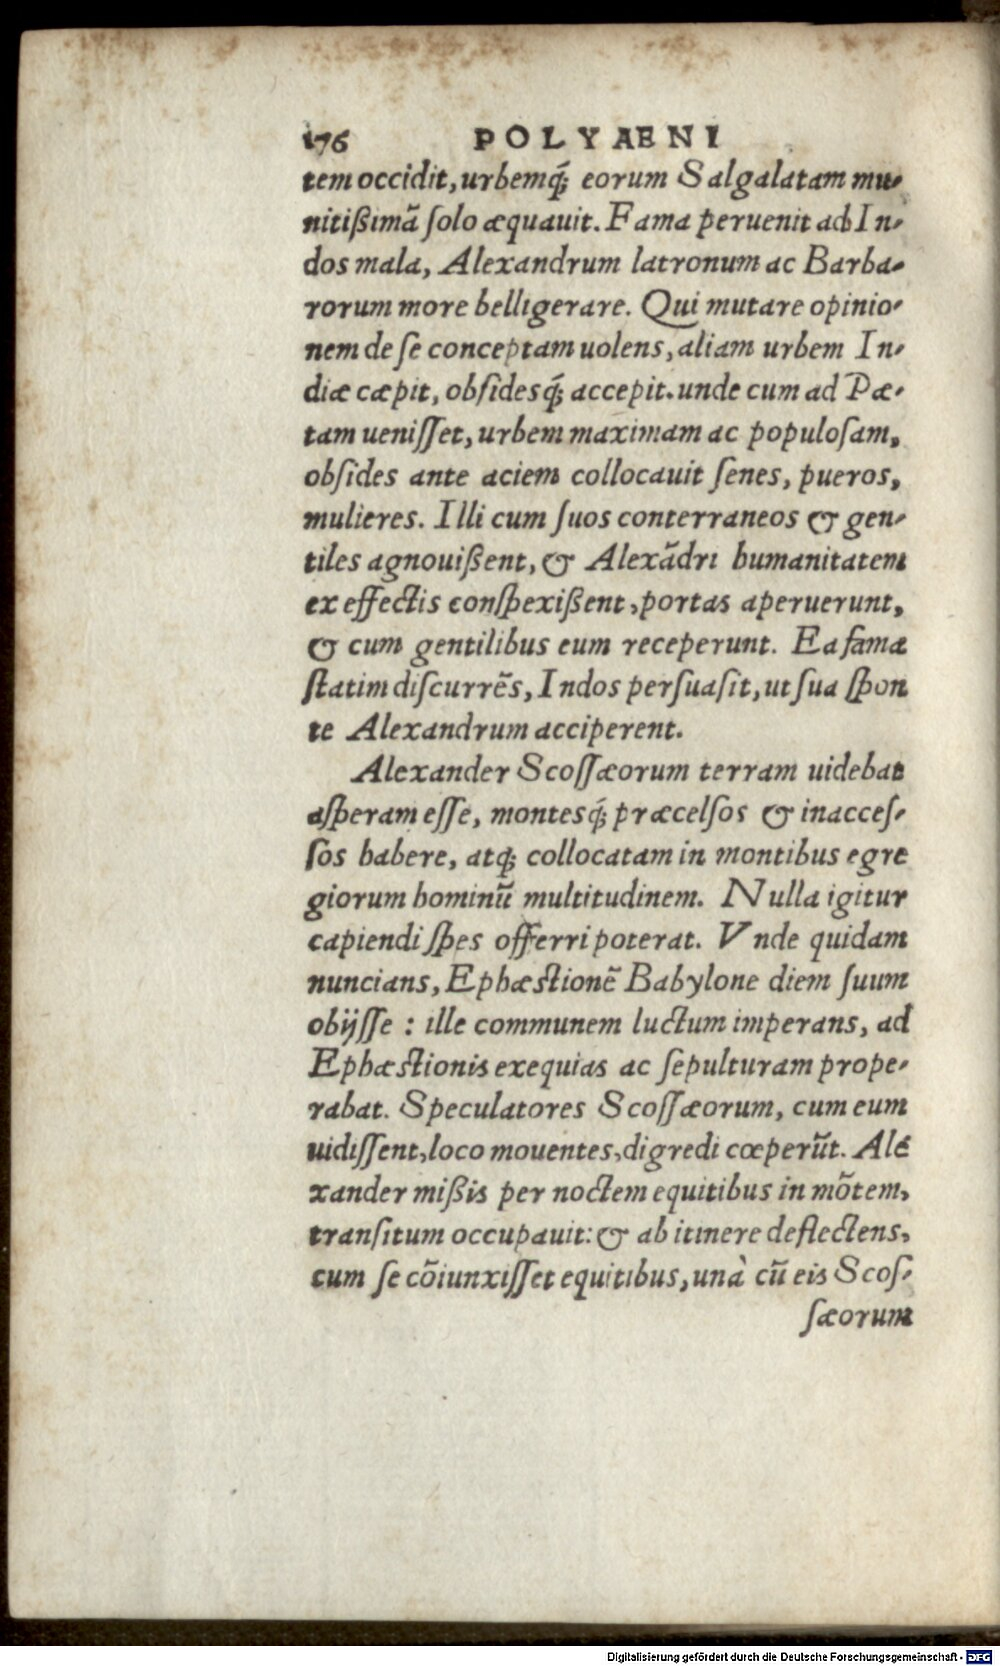 176 POLYAENI
tem occidit, urbemq́; eorum Salgalatam mu-
nitißimã ſolo æquauit. Fama peruenit ad In-
dos mala, Alexandrum latronum ac Barba-
rorum more belligerare. Qui mutare opinio-
nem de ſe conceptam uolens, aliam urbem In-
diæ cæpit, obſidesq́; accepit. unde cum ad Pæ-
tam ueniſſet, urbem maximam ac populoſam,
obſides ante aciem collocauit ſenes, pueros,
mulieres. Illi cum ſuos conterraneos & gen-
tiles agnouißent, & Alexãdri humanitatem
ex effectis conſpexißent, portas aperuerunt,
& cum gentilibus eum receperunt. Ea fama
ſtatim diſcurrẽs, Indos perſuaſit, ut ſua ſpon
te Alexandrum acciperent.
Alexander Scoſſæorum terram uidebat
aſperam eſſe, montesq́; præcelſos & inacceſ-
ſos habere, atq́; collocatam in montibus egre
giorum hominũ multitudinem. Nulla igitur
capiendi ſpes offerri poterat. Vnde quidam
nuncians, Ephæſtionẽ Babylone diem ſuum
obijſſe : ille communem luctum imperans, ad
Ephæſtionis exequias ac ſepulturam prope-
rabat. Speculatores Scoſſæorum, cum eum
uidiſſent, loco mouentes, digredi cœperũt. Ale
xander mißis per noctem equitibus in mõtem,
tranſitum occupauit: & ab itinere deflectens,
cum ſe cõiunxiſſet equitibus, unà cũ eis Scoſ-
ſæorum
Digitalisierung gefördert durch die Deutsche Forschungsgemeinschaft - DFG